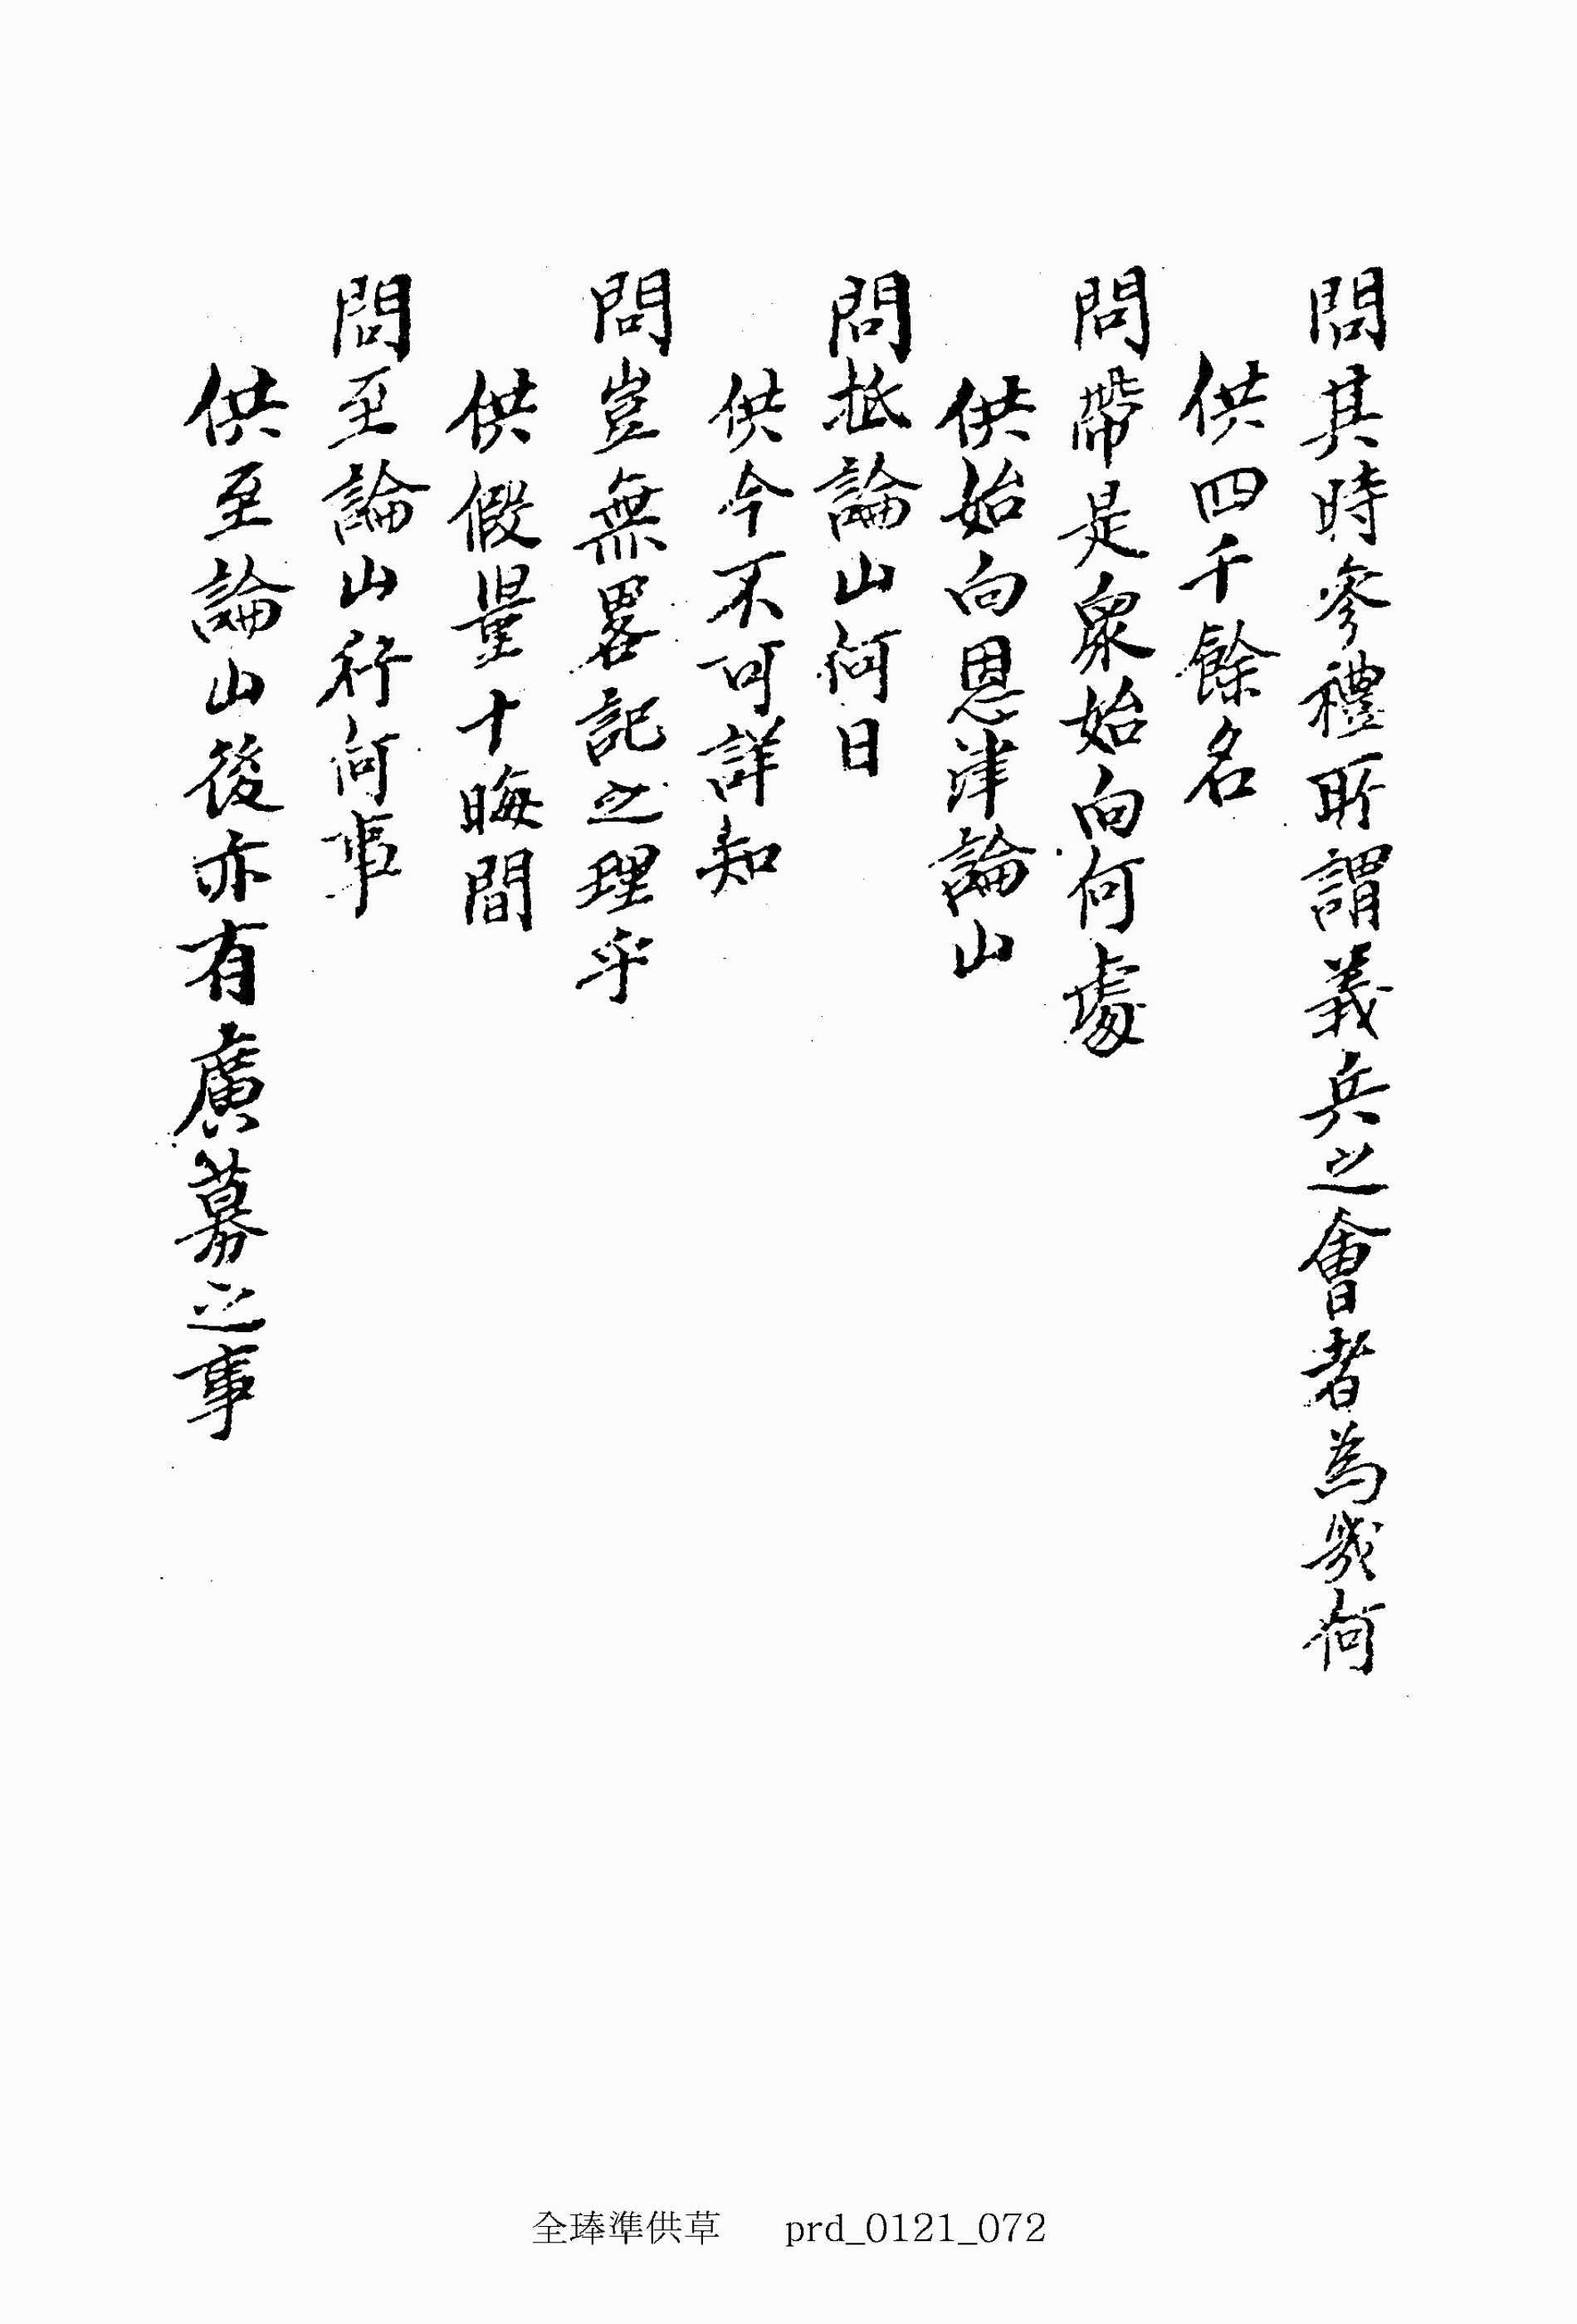 問其時參禮所謂義兵之會者為幾何
供四千餘名
問帶是衆始向何處
供始向恩津論山
問抵論山何日
供今不可詳知
問豈無畧記之理乎
供假量十晦間
問至論山行何事
供至論山後亦有廣募之事
全琫準供草 prd_0121_072